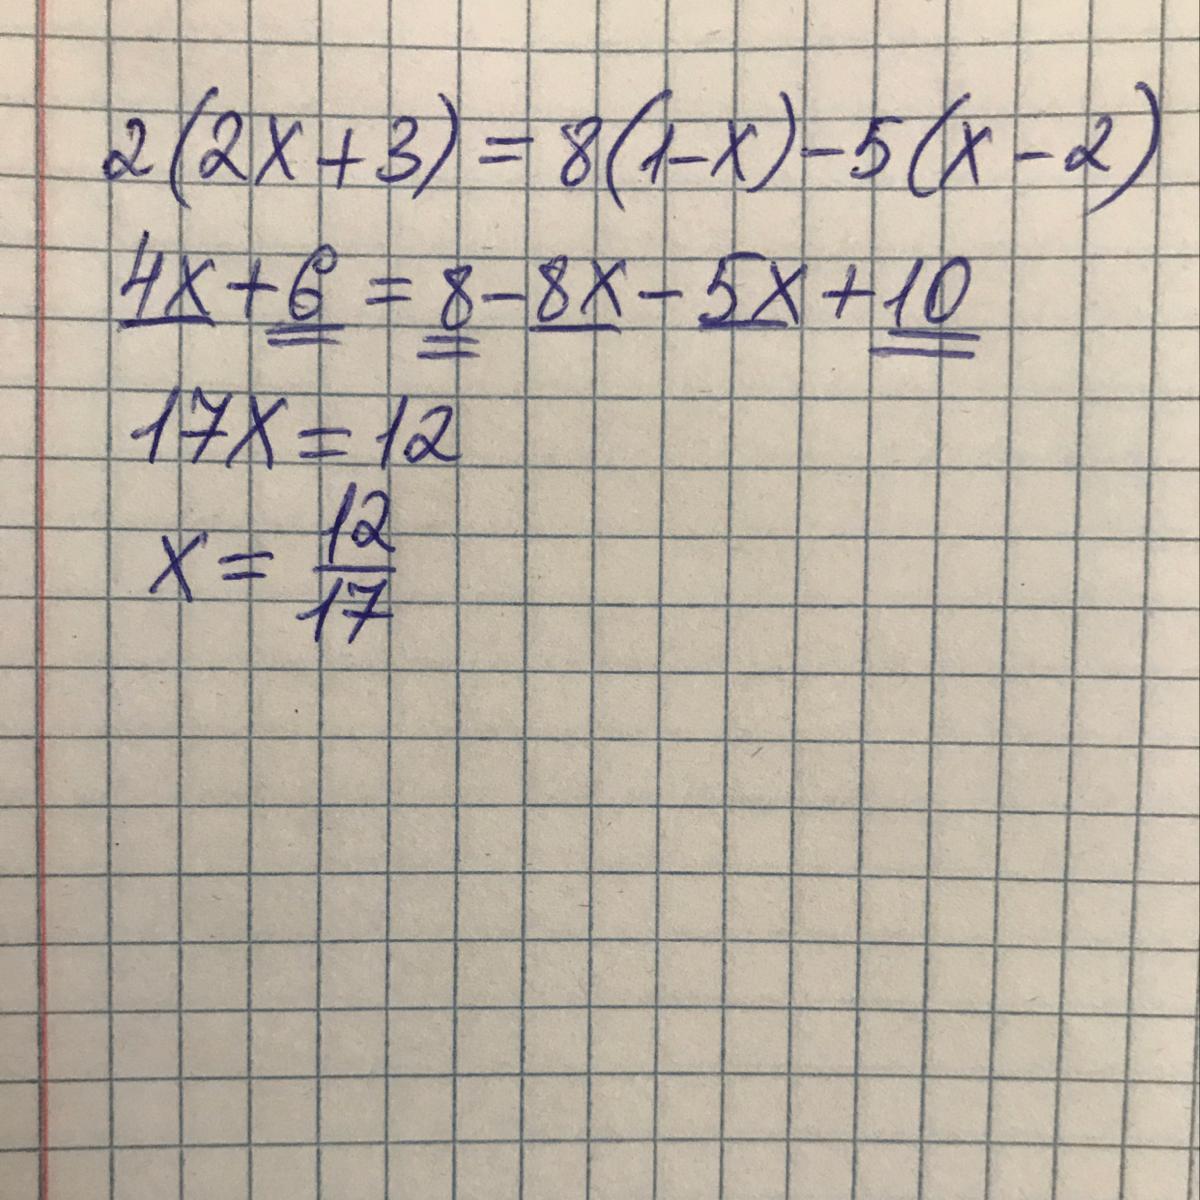 2(2x+3)=8(1-x)-5(x-2)
4x+6=8-8x-5x+10
17x=12
x=12/17